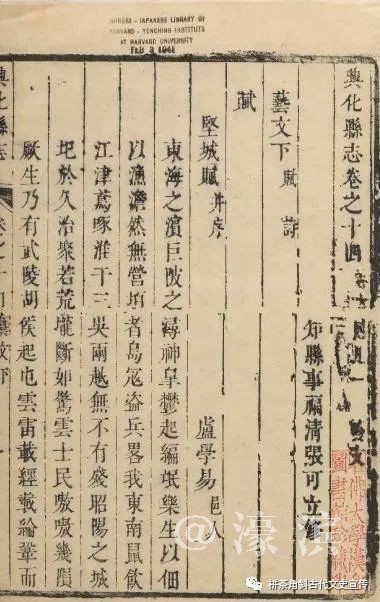 CHINESE - JAPANESE LIBRARY OF
HARVARD - YENCHING INSTITUTE
AT HARVARD UNIVERSITY
FEB 3
興化縣志卷之十四
文
知縣事福清張可立修
藝文下 賦 詩
賦
堅城賦并序 盧學易 邑人
東海之濱巨陂之潯神皐鬱起編氓樂生以佃
以漁澹然無營頃者島冦盜兵畧我東南鼠飲
江津鳶啄淮干三吳兩越無不有殘昭陽之城
圯於久治衆若荒壠斷如驚雲士民嗷嗷幾隕
厥生乃有武陵胡侯起屯雲雷載經載綸舉而
興化縣志
佛大學漢
圖書館珍藏
@濠滨
拼茶角斜古代文史宣传